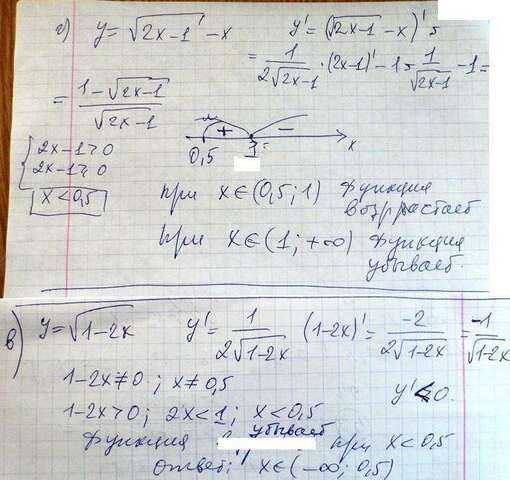 г) y = √(2x-1) - x    y' = (√(2x-1) - x)' =
= 1/(2√(2x-1)) · (2x-1)' - 1 = 1/√(2x-1) - 1 =
= (1-√(2x-1))/√(2x-1)
+ -
0,5 1 x
{ 2x-1>0
2x-1≥0
x<0,5
при x∈(0,5; 1) функция
возрастает
при x∈(1; +∞) функция
убывает.
в) y = √(1-2x)    y' = 1/(2√(1-2x)) (1-2x)' = -2/(2√(1-2x)) = -1/√(1-2x)
1-2x≠0 ; x≠0,5
y'<0.
1-2x>0; 2x<1; x<0,5
функция убывает при x<0,5
ответ: x∈(-∞; 0,5)